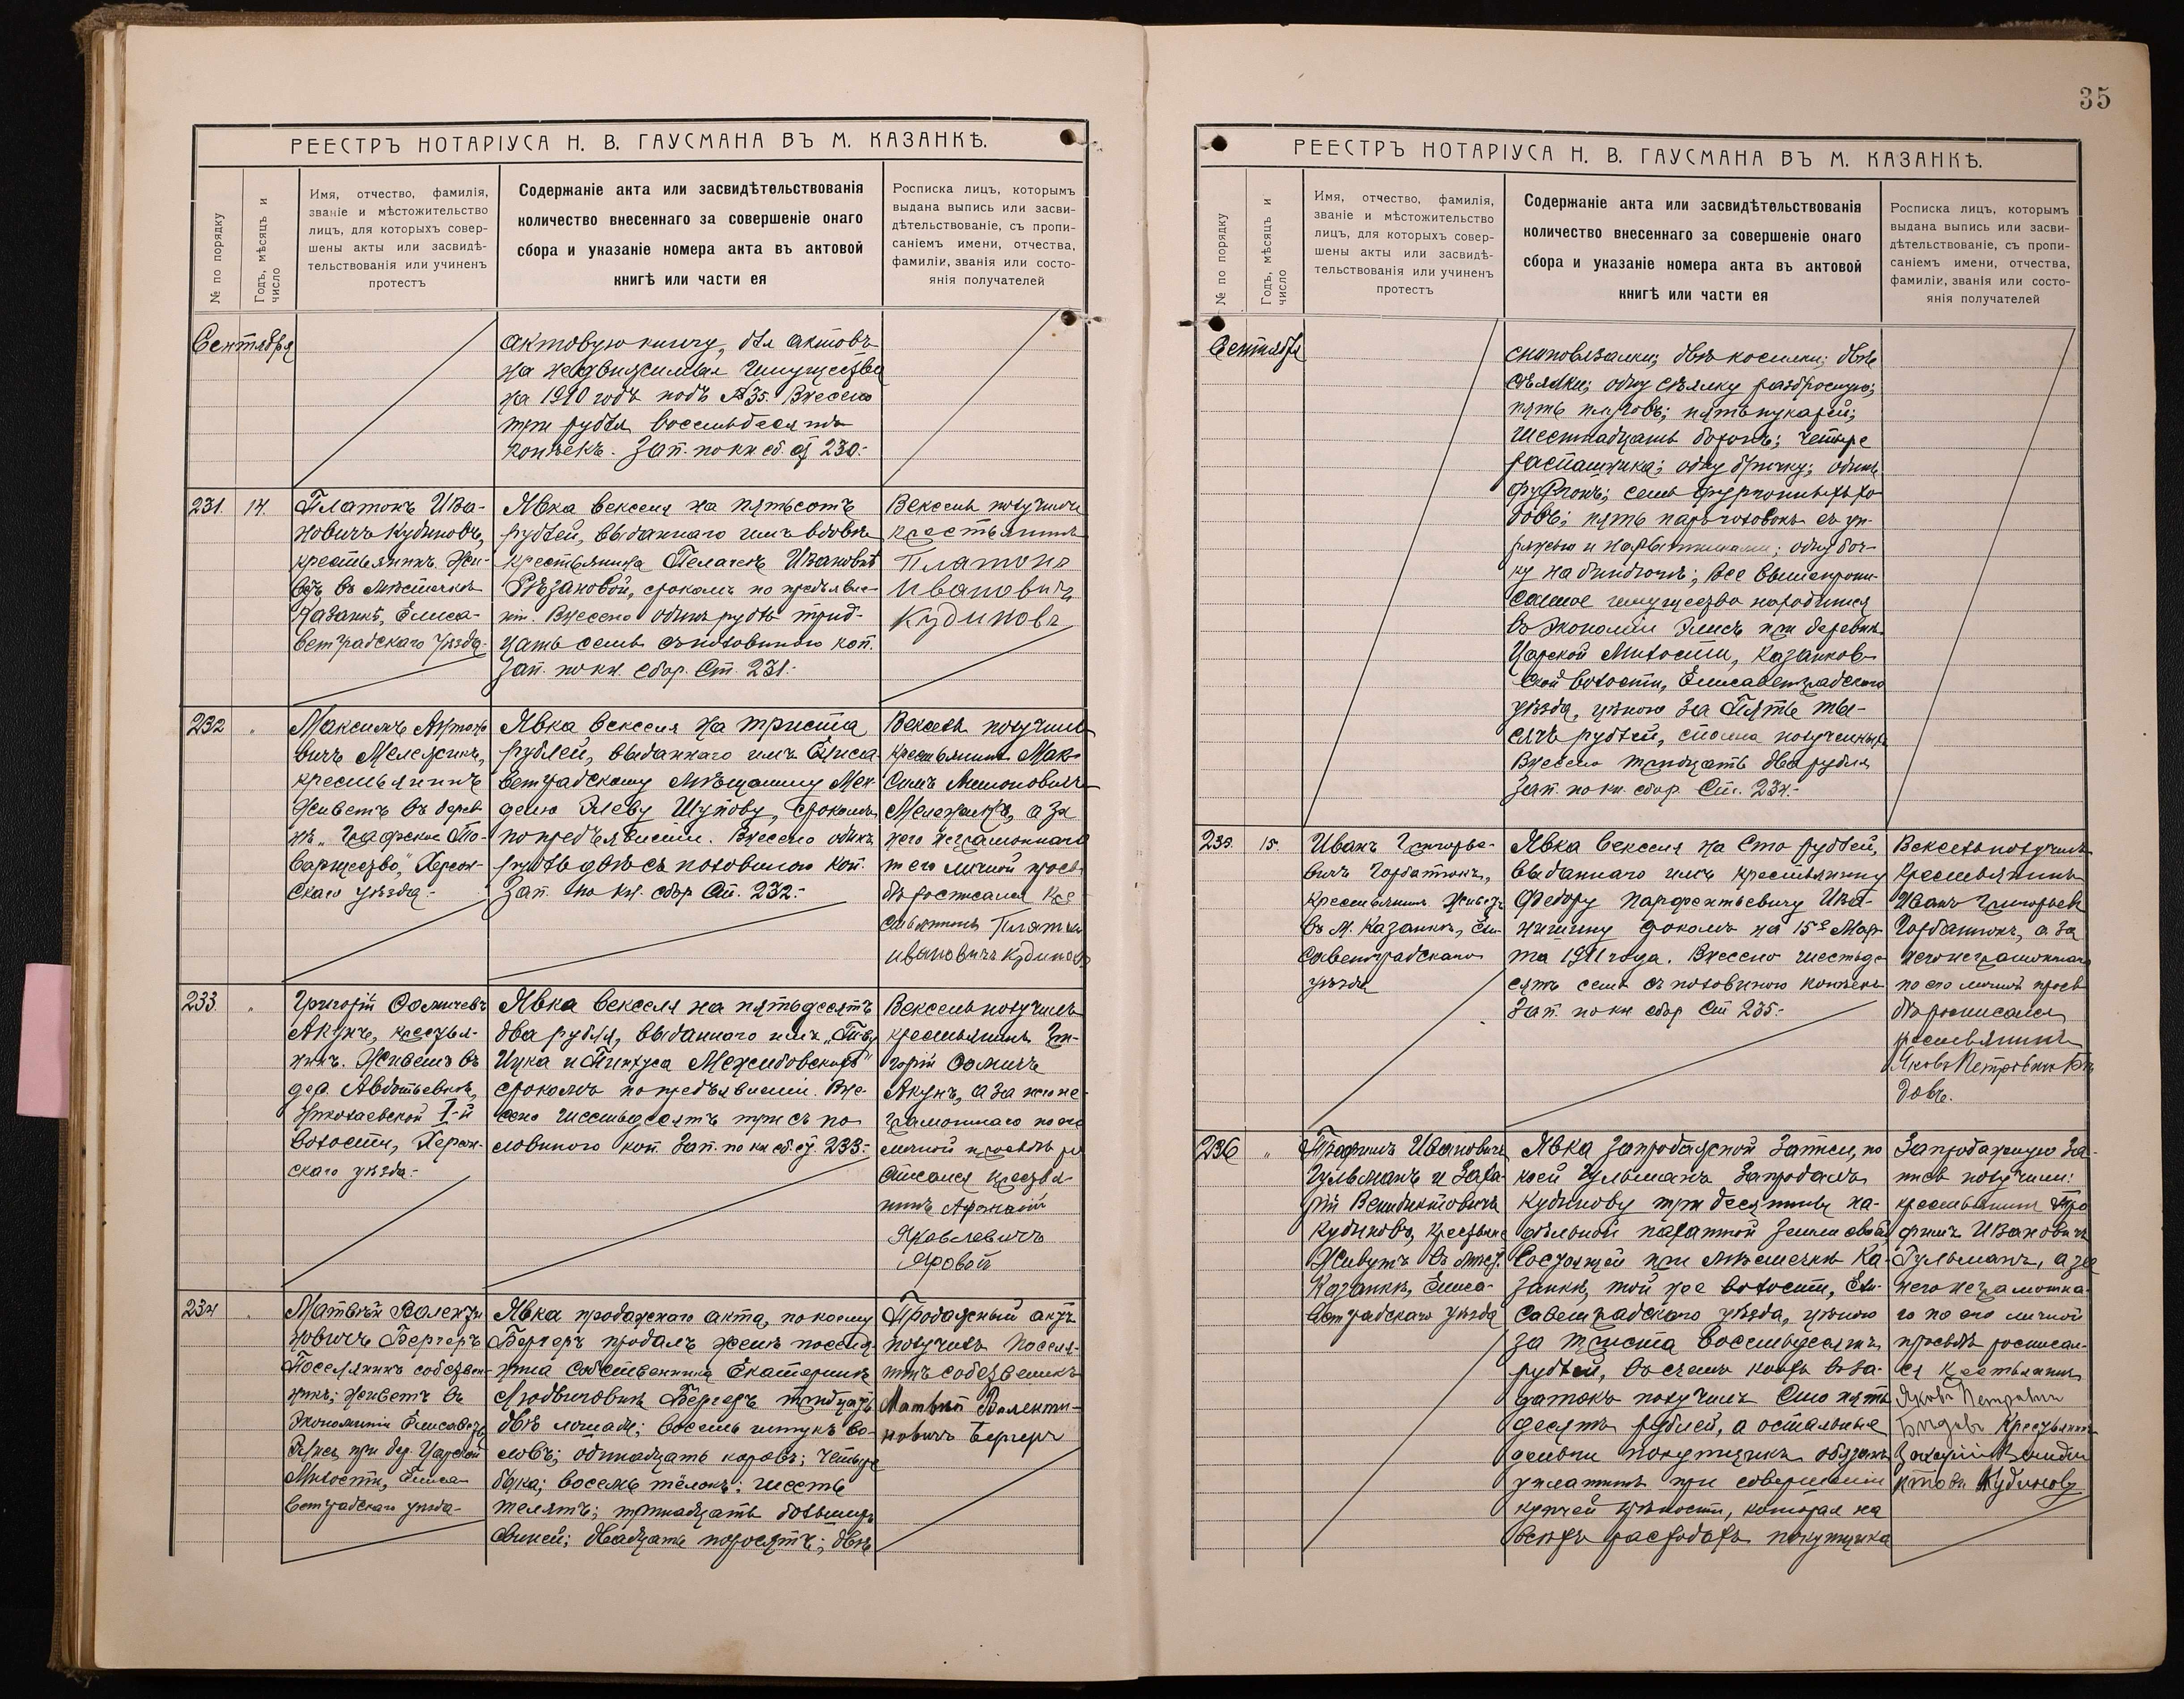 РЕЕСТРЪ НОТАРІУСА Н. В. ГАУСМАНА ВЪ М. КАЗАНКѢ.
№ по порядку
Годъ, мѣсяцъ и
число
Имя, отчество, фамилія,
званіе и мѣстожительство
лицъ, для которыхъ совер-
шены акты или засвидѣ-
тельствованія или учиненъ
протестъ
Содержаніе акта или засвидѣтельствованія
количество внесеннаго за совершеніе онаго
сбора и указаніе номера акта въ актовой
книгѣ или части ея
Росписка лицъ, которымъ
выдана выпись или засви-
дѣтельствованіе, съ пропи-
саніемъ имени, отчества,
фамиліи, званія или состо-
янія получателей
Сентября
актовую книгу, для актовъ
на недвижимыя имущества
на 1910 годъ подъ №35. Внесено
три рубля восемьдесятъ
копѣекъ. Зап. по кн сб. ст 230.-
231. 14.
Платонъ Ива-
новичъ Кудиновъ,
крестьянинъ. Жи-
ветъ въ мѣстечкѣ
Казанкѣ, Елиса-
ветградскаго уѣзда.-
Явка векселя на пятьсотъ
рублей, выданнаго имъ вдовѣ
крестьянина Пелагеѣ Ивановнѣ
Рѣзановой, срокомъ по предъявле-
ніи. Внесено одинъ рубль трид-
цать семь съ половиною коп.
Зап. по кн. сбор. Ст. 231.-
Вексель получилъ
крестьянинъ
Платонъ
Ивановичъ
Кудиновъ
232 "
Максимъ Антоно
вичъ
крестьянинъ
Живетъ въ дерев-
нѣ "Графское То-
варищество", Херсон-
скаго уѣзда.-
Явка векселя на триста
рублей, выданнаго имъ Елиса
ветградскому мѣщанину Мен
делю Элеву Шупову, срокомъ
по предъявленіи. Внесено одинъ
рубль двѣ съ половиною коп.
Зап. по кн. сбор. Ст. 232.-
Вексель получилъ
крестьянинъ Мак-
симъ
а за
него неграмотнаго
по его личной прось
бѣ росписался кре
стьянинъ Платонъ
Ивановичъ Кудиновъ
233. "
Григорій Фомичевъ
Акунъ, крестья-
нинъ. Живетъ въ
дер. Авдотьевкѣ,
Николаевской I-й
волости, Херсон-
скаго уѣзда.-
Явка векселя на пятьдесятъ
два рубля, выданнаго имъ
Ицка и Пинкуса Межибовскихъ"
срокомъ по предъявленіи. Вне-
сено шестьдесятъ три съ по
ловиною коп. Зап. по кн сб. ст. 233.-
Вексель получилъ
крестьянинъ Гри-
горій Фомичъ
Акунъ, а за него не-
грамотнаго по его
личной просьбѣ ро
списался крестья-
нинъ Афанасій
Яковлевичъ
Яровой
234 "
Матвѣй Валенти
новичъ Бергеръ
Поселянинъ собствен-
никъ; живетъ въ
Экономіи
Элисъ при дер. Царской
Милости, Елиса-
ветградскаго уѣзда-
Явка продажнаго акта, по коему
Бергеръ продалъ женѣ поселя-
нина собственника Екатеринѣ
Людвиговнѣ Бергеръ тридцать
двѣ лошади; восемь штукъ во-
ловъ; одинадцать коровъ; четыре
быка; восемь тёлокъ; шесть
телятъ; тринадцать большихъ
свиней; двадцать поросятъ; двѣ
Продажный актъ
получилъ поселя-
нинъ собственникъ
Матвѣй Валенти-
новичъ Бергеръ
35
РЕЕСТРЪ НОТАРІУСА Н. В. ГАУСМАНА ВЪ М. КАЗАНКѢ.
№ по порядку
Годъ, мѣсяцъ и
число
Имя, отчество, фамилія,
званіе и мѣстожительство
лицъ, для которыхъ совер-
шены акты или засвидѣ-
тельствованія или учиненъ
протестъ
Содержаніе акта или засвидѣтельствованія
количество внесеннаго за совершеніе онаго
сбора и указаніе номера акта въ актовой
книгѣ или части ея
Росписка лицъ, которымъ
выдана выпись или засви-
дѣтельствованіе, съ пропи-
саніемъ имени, отчества,
фамиліи, званія или состо-
янія получателей
Сентября
сноповязалки; двѣ косилки; двѣ
сѣялки; одну сѣялку разбросную;
пять плуговъ; пять букарей;
шестнадцать боронъ; четыре
распашника; одну бричку; одинъ
фургонъ; семь фургонныхъ хо
довъ; пять паръ головокъ съ уп-
ряжью и нарытниками; одну боч-
ку на биндюгѣ; все вышепропи-
санное имущество находится
въ экономіи Элисъ при деревнѣ
Царской Милости, Казанков-
ской волости, Елисаветградскаго
уѣзда, цѣною за Пять ты-
сячъ рублей, сполна полученныхъ
Внесено тридцать два рубля
Зап. по кн. сбор. Ст. 234.-
235. 15.
Иванъ Григорье-
вичъ Горбатюкъ,
крестьянинъ. Живетъ
въ м. Казанкѣ, Ели-
саветградскаго
уѣзда
Явка векселя на Сто рублей,
выданнаго имъ крестьянину
Федору Парфентьевичу Ива-
нишину срокомъ на 15е Мар-
та 1911 года. Внесено шестьде-
сятъ семь съ половиною копѣекъ
Зап. по кн сбор Ст 235.-
Вексель получилъ
Крестьянинъ
Иванъ Григорьев
Горбатюкъ, а за
него неграмотнаго
по его личной прось
бѣ росписался
крестьянинъ
Яковъ Петровичъ
236 "
Трофимъ Ивановичъ
Гульманъ и Заха-
рій Венидиктовичъ
Кудиновъ, крестьяне
Живутъ въ мѣст.
Казанкѣ, Елиса-
ветградскаго уѣзда
Явка запродажной записи, по
коей Гульманъ запродалъ
Кудинову три десятины на-
дѣльной пахатной земли своей
состоящей при мѣстечкѣ Ка-
занкѣ, той же волости, Ели-
саветградскаго уѣзда, цѣною
за триста восемьдесятъ
рублей, въ счетъ коихъ въ за-
датокъ получилъ Сто пять
десятъ рублей, а остальные
деньги покупщикъ обязанъ
уплатить при совершеніи
купчей крѣпости, которая на
всѣхъ расходахъ покупщика
Запродажную за-
пись получили:
крестьянинъ Тро
фимъ Ивановичъ
Гульманъ, а за
него неграмотна-
го по его личной
просьбѣ росписал-
ся крестьянинъ
Яковъ Петровичъ
Крестьянинъ
Захарій Вениди
ктовъ Кудиновъ